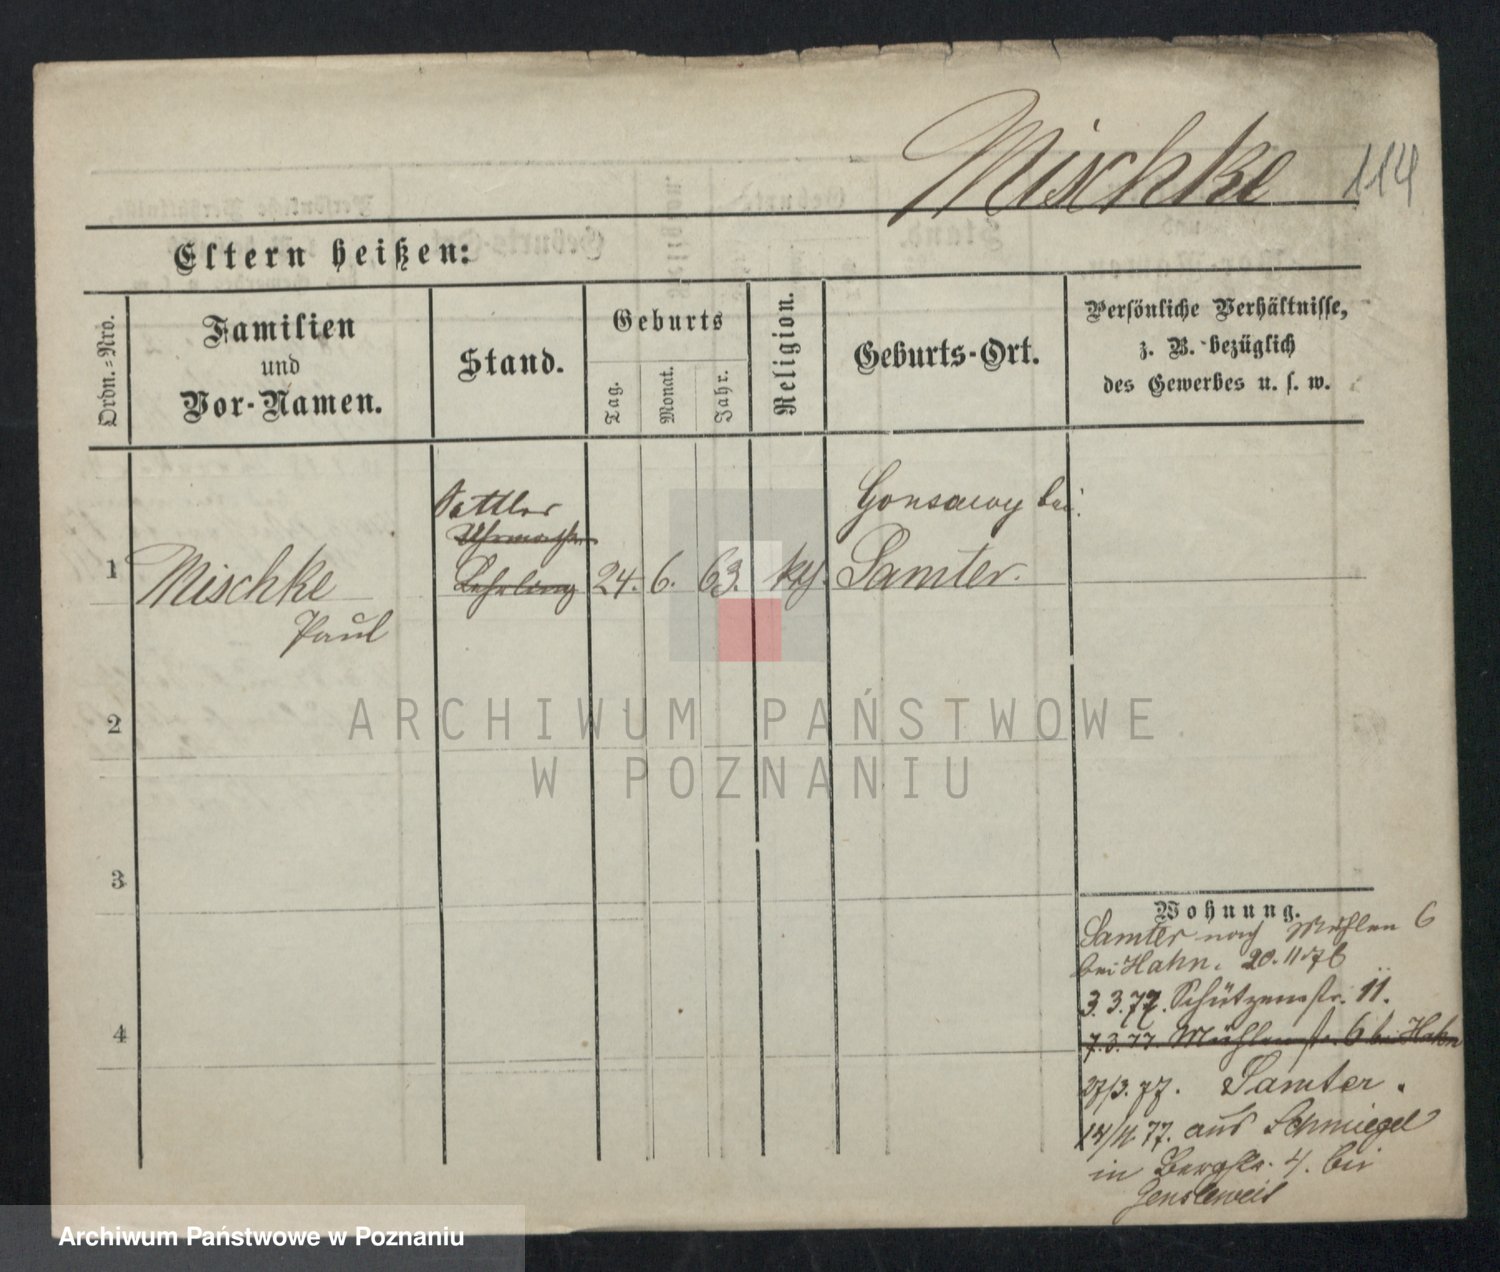 Mischke
114
Eltern heißen:
Ordn.-Nro.
Familien
und
Vor-Namen.
Stand.
Geburts
Tag.
Monat.
Jahr.
Religion.
Geburts-Ort.
Persönliche Verhältnisse,
z. B. bezüglich
des Gewerbes u. s. w.
1
Mischke
Paul
Sattler
Uhrmacher
Lehrling
24. 6. 63. kth.
Gonsawy bei
Samter.
2
3
4
Wohnung.
Samter nach Mühlen 6
bei Hahn. 20.11.76
3.3.77. Schützenstr. 11.
7.3.77. Mühlenstr. 6 bei Hahn
27/3.77. Samter.
14/11.77. aus Schmiegel
in Bergstr. 4. bei
ARCHIWUM PAŃSTWOWE
W POZNANIU
Archiwum Państwowe w Poznaniu